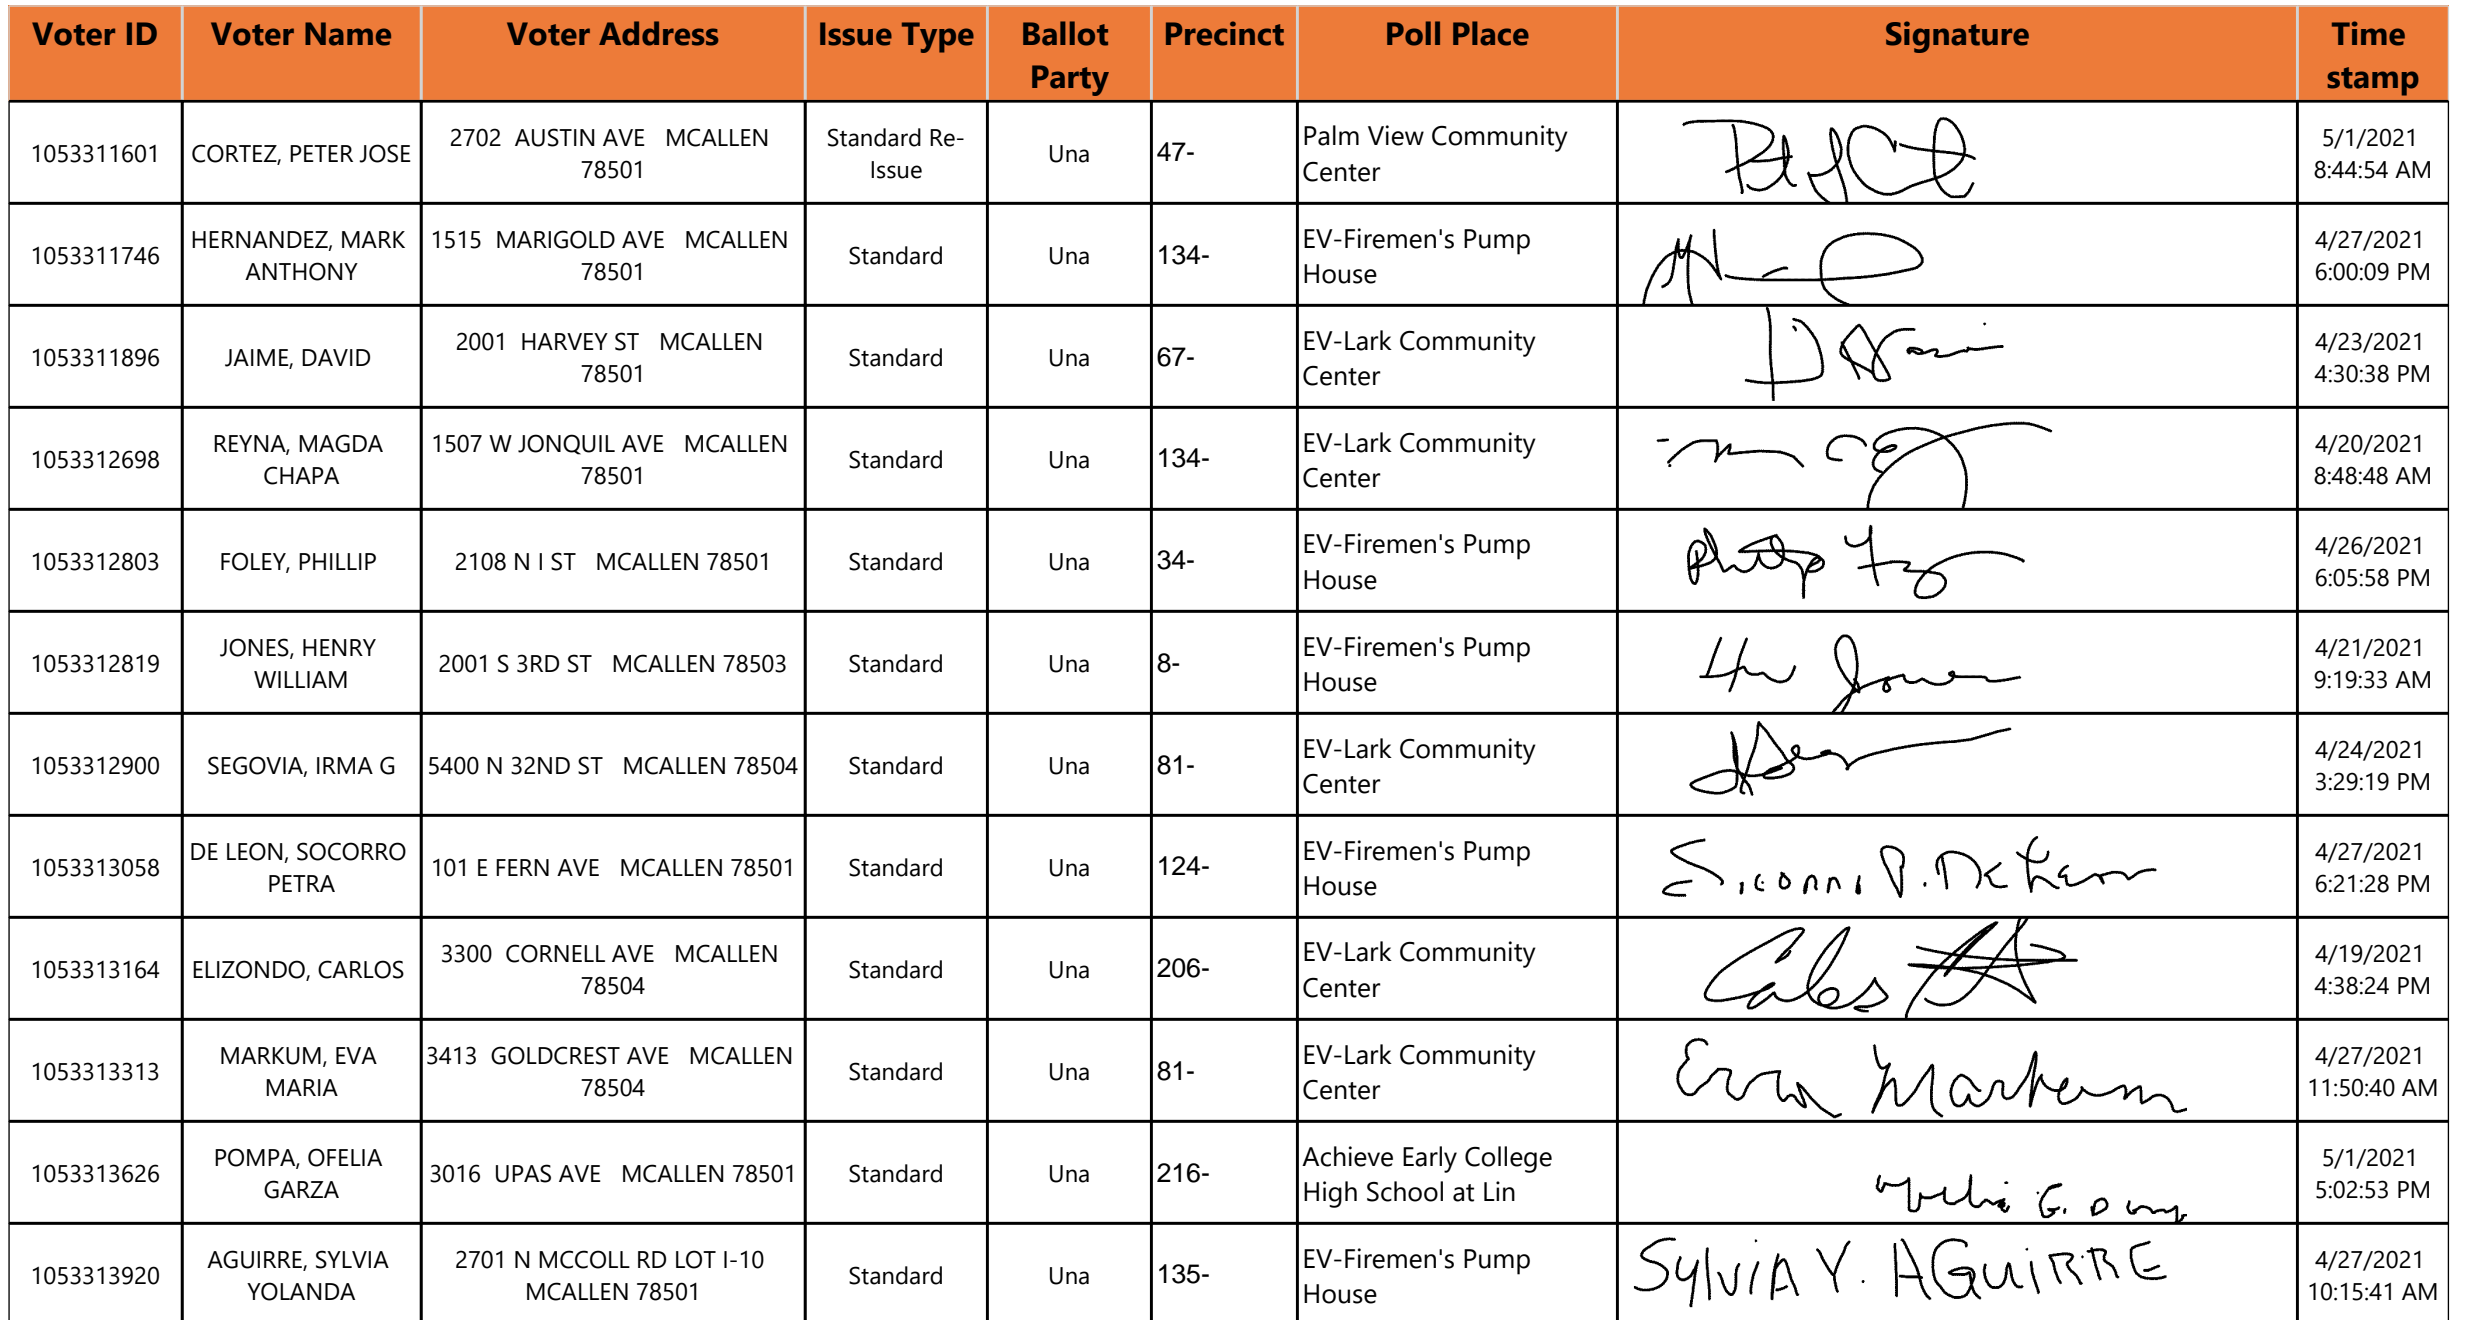 Voter ID Voter Name Voter Address Issue Type Ballot Party Precinct Poll Place Signature Time stamp
1053311601 CORTEZ, PETER JOSE 2702 AUSTIN AVE MCALLEN 78501 Standard Re-Issue Una 47- Palm View Community Center 5/1/2021 8:44:54 AM
1053311746 HERNANDEZ, MARK ANTHONY 1515 MARIGOLD AVE MCALLEN 78501 Standard Una 134- EV-Firemen's Pump House 4/27/2021 6:00:09 PM
1053311896 JAIME, DAVID 2001 HARVEY ST MCALLEN 78501 Standard Una 67- EV-Lark Community Center 4/23/2021 4:30:38 PM
1053312698 REYNA, MAGDA CHAPA 1507 W JONQUIL AVE MCALLEN 78501 Standard Una 134- EV-Lark Community Center 4/20/2021 8:48:48 AM
1053312803 FOLEY, PHILLIP 2108 N I ST MCALLEN 78501 Standard Una 34- EV-Firemen's Pump House 4/26/2021 6:05:58 PM
1053312819 JONES, HENRY WILLIAM 2001 S 3RD ST MCALLEN 78503 Standard Una 8- EV-Firemen's Pump House Jones 4/21/2021 9:19:33 AM
1053312900 SEGOVIA, IRMA G 5400 N 32ND ST MCALLEN 78504 Standard Una 81- EV-Lark Community Center 4/24/2021 3:29:19 PM
1053313058 DE LEON, SOCORRO PETRA 101 E FERN AVE MCALLEN 78501 Standard Una 124- EV-Firemen's Pump House 4/27/2021 6:21:28 PM
1053313164 ELIZONDO, CARLOS 3300 CORNELL AVE MCALLEN 78504 Standard Una 206- EV-Lark Community Center 4/19/2021 4:38:24 PM
1053313313 MARKUM, EVA MARIA 3413 GOLDCREST AVE MCALLEN 78504 Standard Una 81- EV-Lark Community Center Eva Markum 4/27/2021 11:50:40 AM
1053313626 POMPA, OFELIA GARZA 3016 UPAS AVE MCALLEN 78501 Standard Una 216- Achieve Early College High School at Lin 5/1/2021 5:02:53 PM
1053313920 AGUIRRE, SYLVIA YOLANDA 2701 N MCCOLL RD LOT I-10 MCALLEN 78501 Standard Una 135- EV-Firemen's Pump House SYLVIA Y. AGUIRRE 4/27/2021 10:15:41 AM